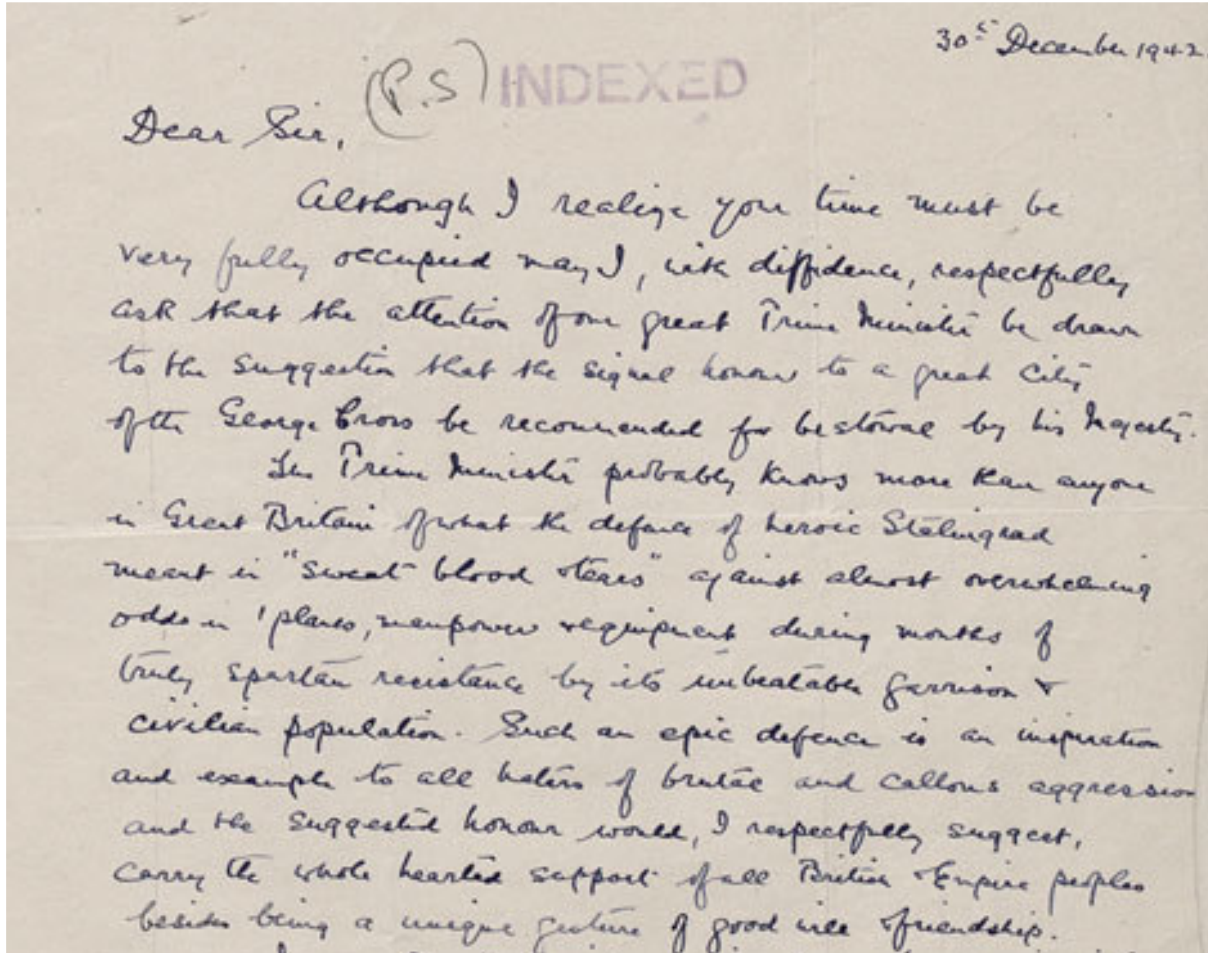 30th December 1942
(P.S) INDEXED
Dear Sir,
Although I realize your time must be
very fully occupied may I, with diffidence, respectfully
ask that the attention of our great Prime Minister be drawn
to the suggestion that the signal honour to a great City
of the George Cross be recommended for bestowal by his Majesty.
The Prime Minister probably knows more than anyone
in Great Britain of what the defence of heroic Stalingrad
meant in "sweat blood & tears" against almost overwhelming
odds in 'planes, manpower & equipment during months of
truly spartan resistance by its unbeatable garrison &
civilian population. Such an epic defence is an inspiration
and example to all haters of brutal and callous aggression
and the suggested honour would, I respectfully suggest,
carry the whole hearted support of all British Empire peoples
besides being a unique gesture of good will & friendship.